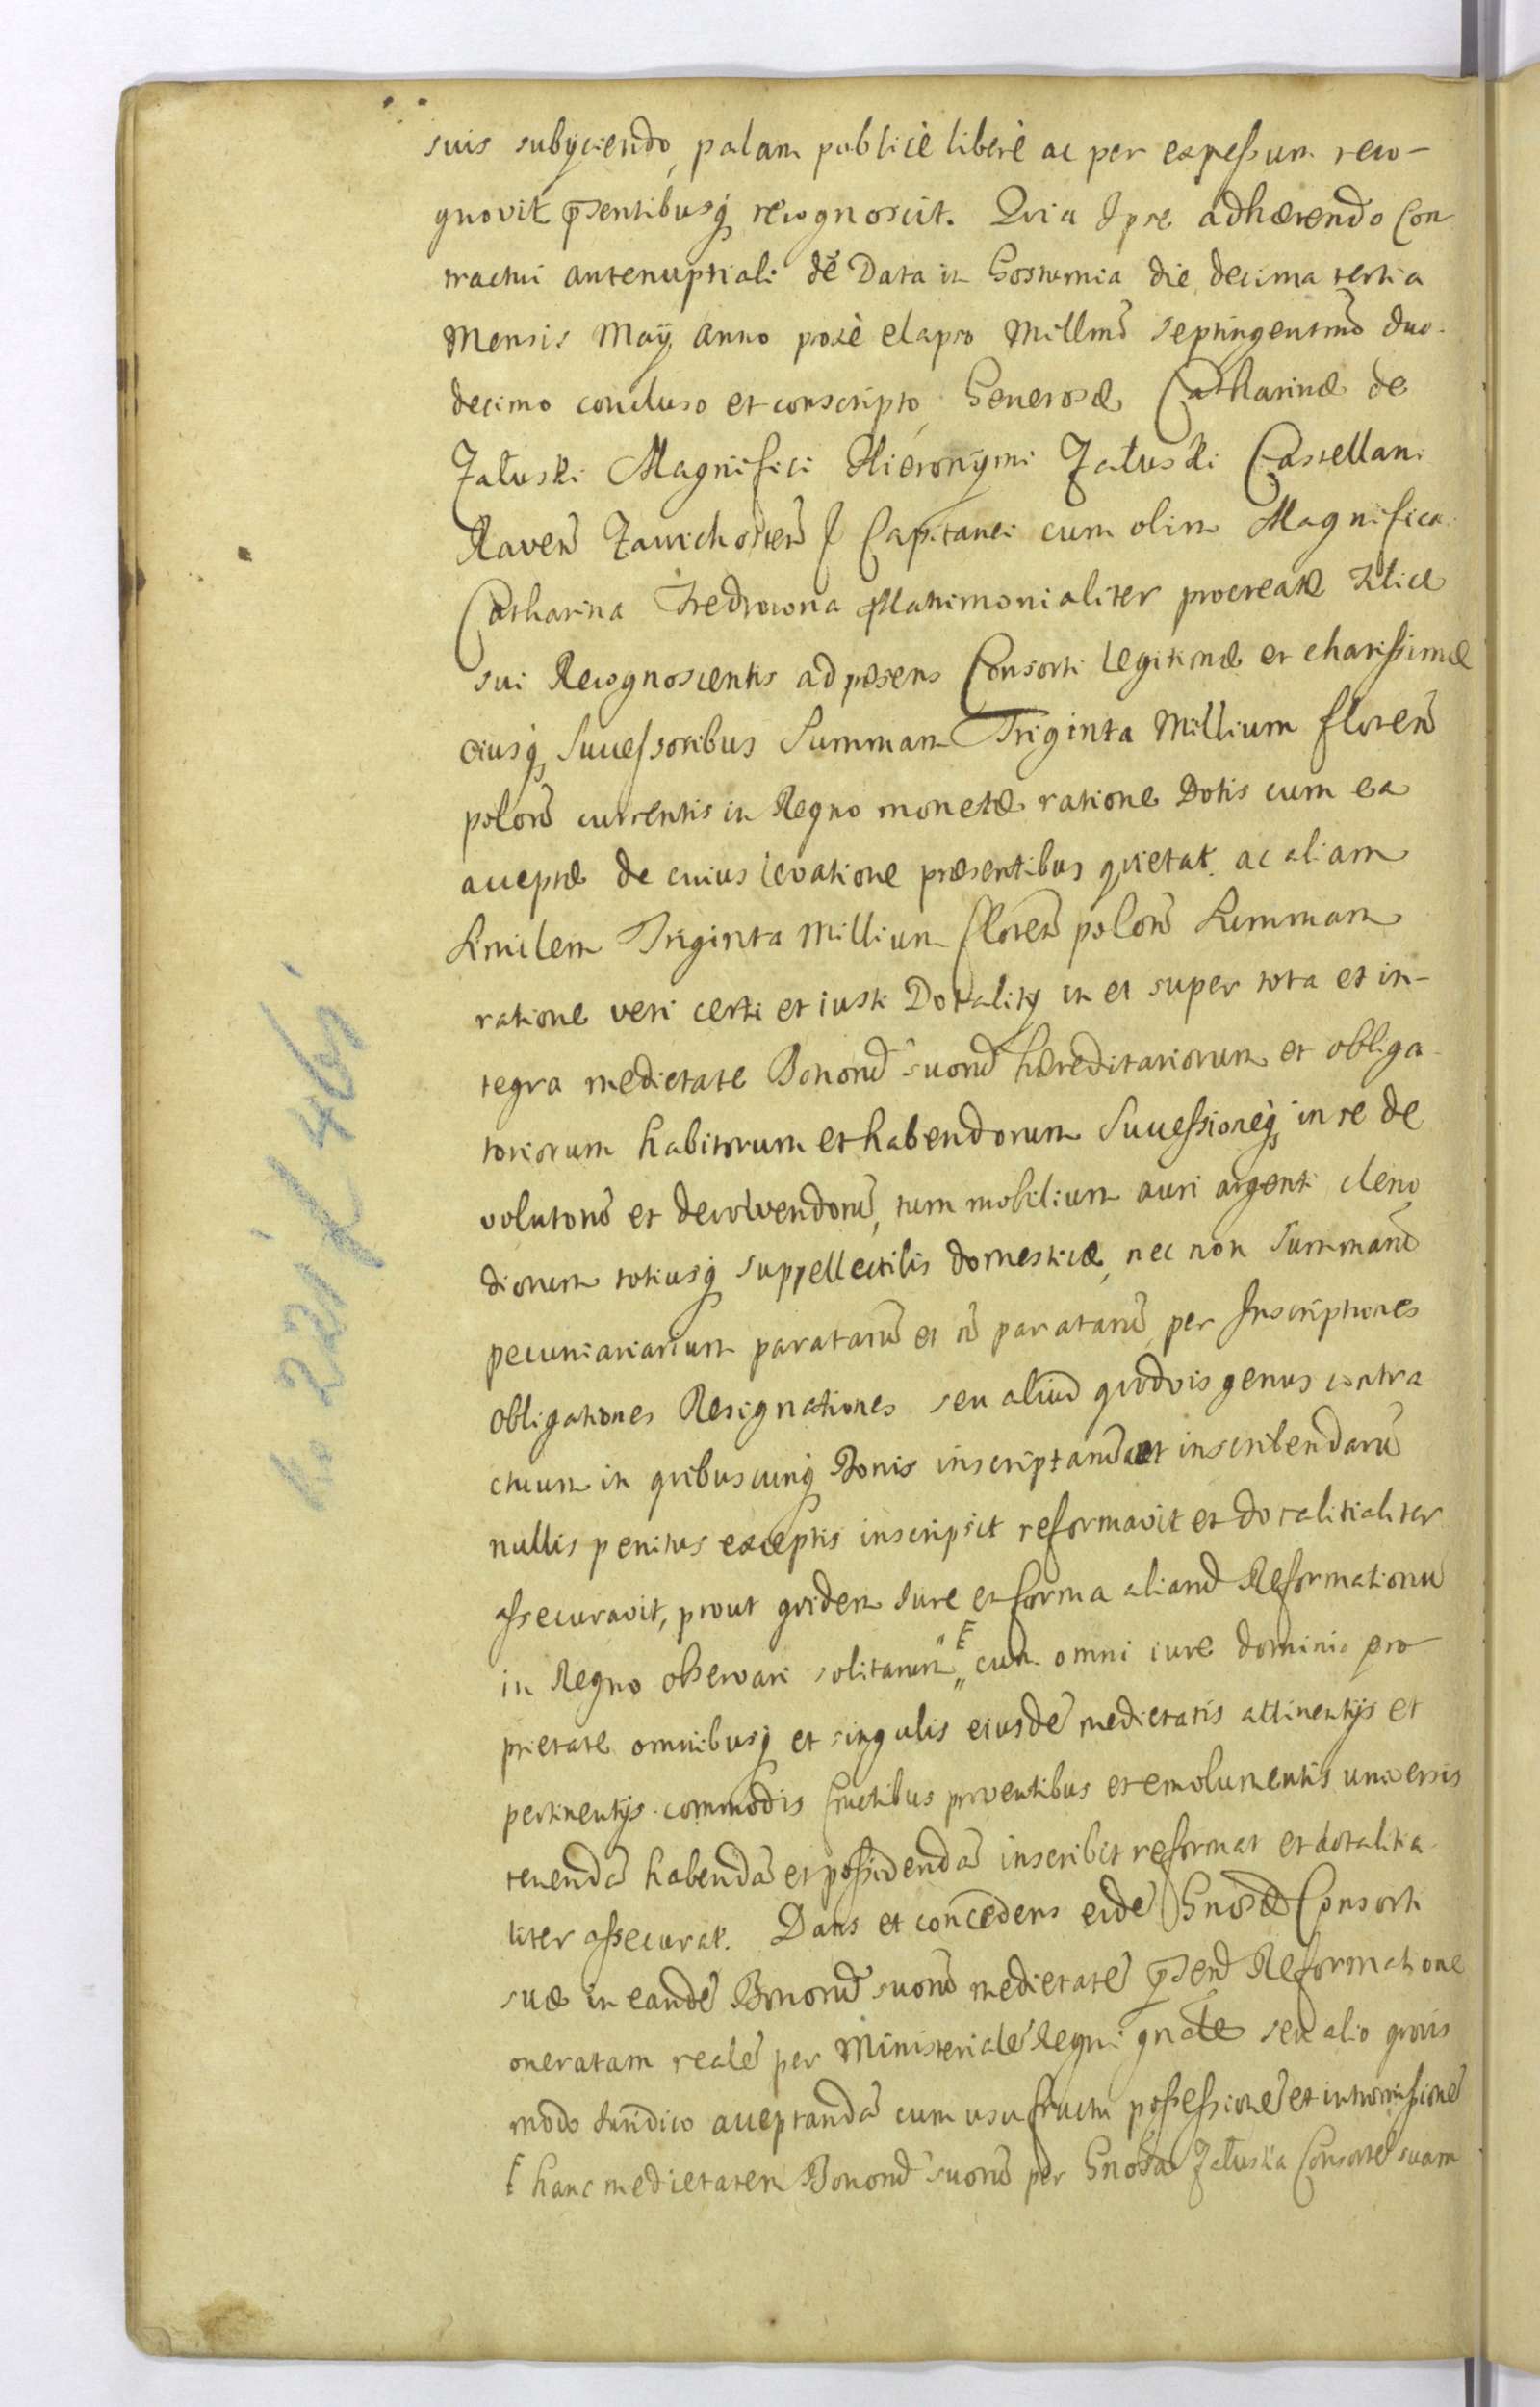 suis subÿciendo, palam publicè liberè ac per expressum reco-
gnovit p̄sentibusq̨ recognoscit. Qvia Ipse adhærendo Con
tractui antenuptiali de Data in Gostumia die decima tertia
Mensis Maÿ Anno poxè elapso Millm̃o septingentm̃o duo-
decimo concluso et conscripto, Generosæ Catharinæ de
Załuski Magnifici Hieronÿmi Załuski Castellani
Raveñ Zawichosteñ Capitanei cum olim Magnifica
Catharina Fredrowna Matrimonialiter procreatæ Filiæ
sui Recognoscentis ad præsens Consorti legitimæ et charissimæ
eiusq̨ Successoribus Summam Triginta Millium floreñ
poloñ currentis in Regno monetæ ratione Dotis cum ea
acceptæ de cuius levatione præsentibus qvietat. ac aliam
Similem Triginta Millium floreñ poloñ Summam
ratione veri certi et iusti Dotalitÿ in et super tota et in-
tegra medietate Bonorũ suorũ hæreditariorum et obliga-
toriorum habitorum et habendorum Successioneq̨ in se de
volutorũ et devolvendorũ, tum mobilium auri argenti cleno
diorum totiusq̨ suppellectilis domesticæ, nec non Summarũ
pecuniariarum paratarũ et ñ paratarũ, per Inscriptiones
obligationes Resignationes seu aliud qvodvis genus contra
ctuum in qvibuscunq̨ Bonis inscriptarũ et inscribendarũ
nullis penitus exceptis inscripsit reformavit et dotalitialiter
assecuravit, prout qvidem Iure et forma aliarũ Reformationũ
in Regno observari solitarum, cum omni iure dominio pro
prietate omnibusq̨ et singulis eiusdẽ medietatis attinentÿs et
pertinentÿs commodis fructibus proventibus et emolumentis universis
tenendã habendã et possidendã inscribit reformat et dotalitia
liter assecurat. Dans et concedens eidẽ Gnosæ Consorti
suæ in eandẽ Bonorũ suorũ medietatẽ p̄señ Reformatione
oneratam realẽ per Ministerialẽ Regni gñalẽ seu alio qvovis
modo Iuridico acceptandã cum usufructu possessionẽ et intromissionẽ
hanc medietatem Bonorũ suorũ per Gnosã Załuska Consortẽ suam